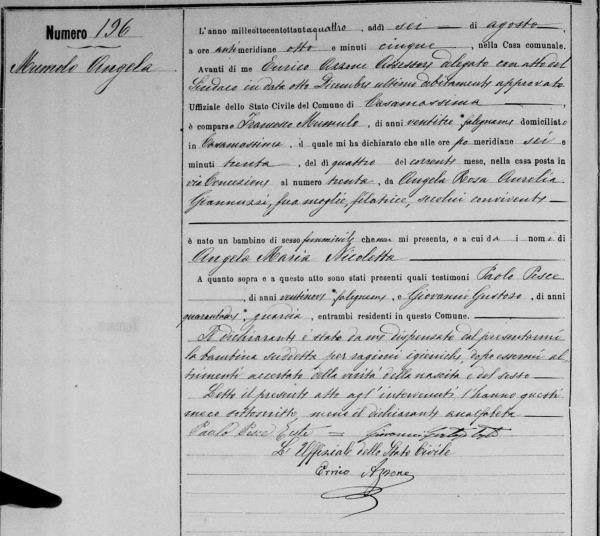 Numero 196
Mumolo Angela
L'anno milleottocentottantaquattro, addì sei di agosto,
a ore antimeridiane otto e minuti cinque, nella Casa comunale.
Avanti di me Enrico Azzone Assessore delegato con atto del
Sindaco in data otto Dicembre ultimo debitamente approvato
Uffiziale dello Stato Civile del Comune di Casamassima
è comparso Francesco Mumulo, di anni ventitre, falegname domiciliato
in Casamassima, il quale mi ha dichiarato che alle ore pomeridiane sei e
minuti trenta, del dì quattro del corrente mese, nella casa posta in
via Concezione al numero trenta, da Angela Rosa Aurelia
Giannuzzi, sua moglie, filatrice, seco lui convivente
è nato un bambino di sesso femminile che non mi presenta, e a cui dà i nomi di
Angela Maria Nicoletta
A quanto sopra e a questo atto sono stati presenti quali testimoni Paolo Pesce
, di anni ventinove, falegname, e Giovanni Gustoso, di anni
quarantadue, guardia, entrambi residenti in questo Comune.
Il dichiarante è stato da me dispensato dal presentarmi
la bambina suddetta per ragioni igieniche, dopo essermi al-
trimenti accertato della verità della nascita e del sesso
Letto il presente atto agl'intervenuti l'hanno questi
meco sottoscritto, meno il dichiarante analfabeta
Paolo Pesce Teste = Giovanni
L'Uffiziale dello Stato Civile
Errico Azzone